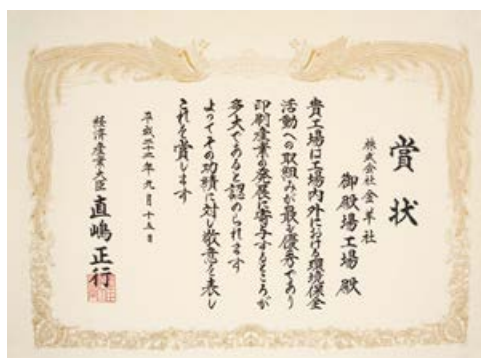 賞状
株式会社金羊社
御殿場工場 殿
貴工場は工場内外における環境保全
活動への取組みが最も優秀であり
印刷産業の発展に寄与するところが
多大であると認められます
よってその功績に対し敬意を表し
これを賞します
平成二十二年九月十五日
経済産業大臣 直嶋正行